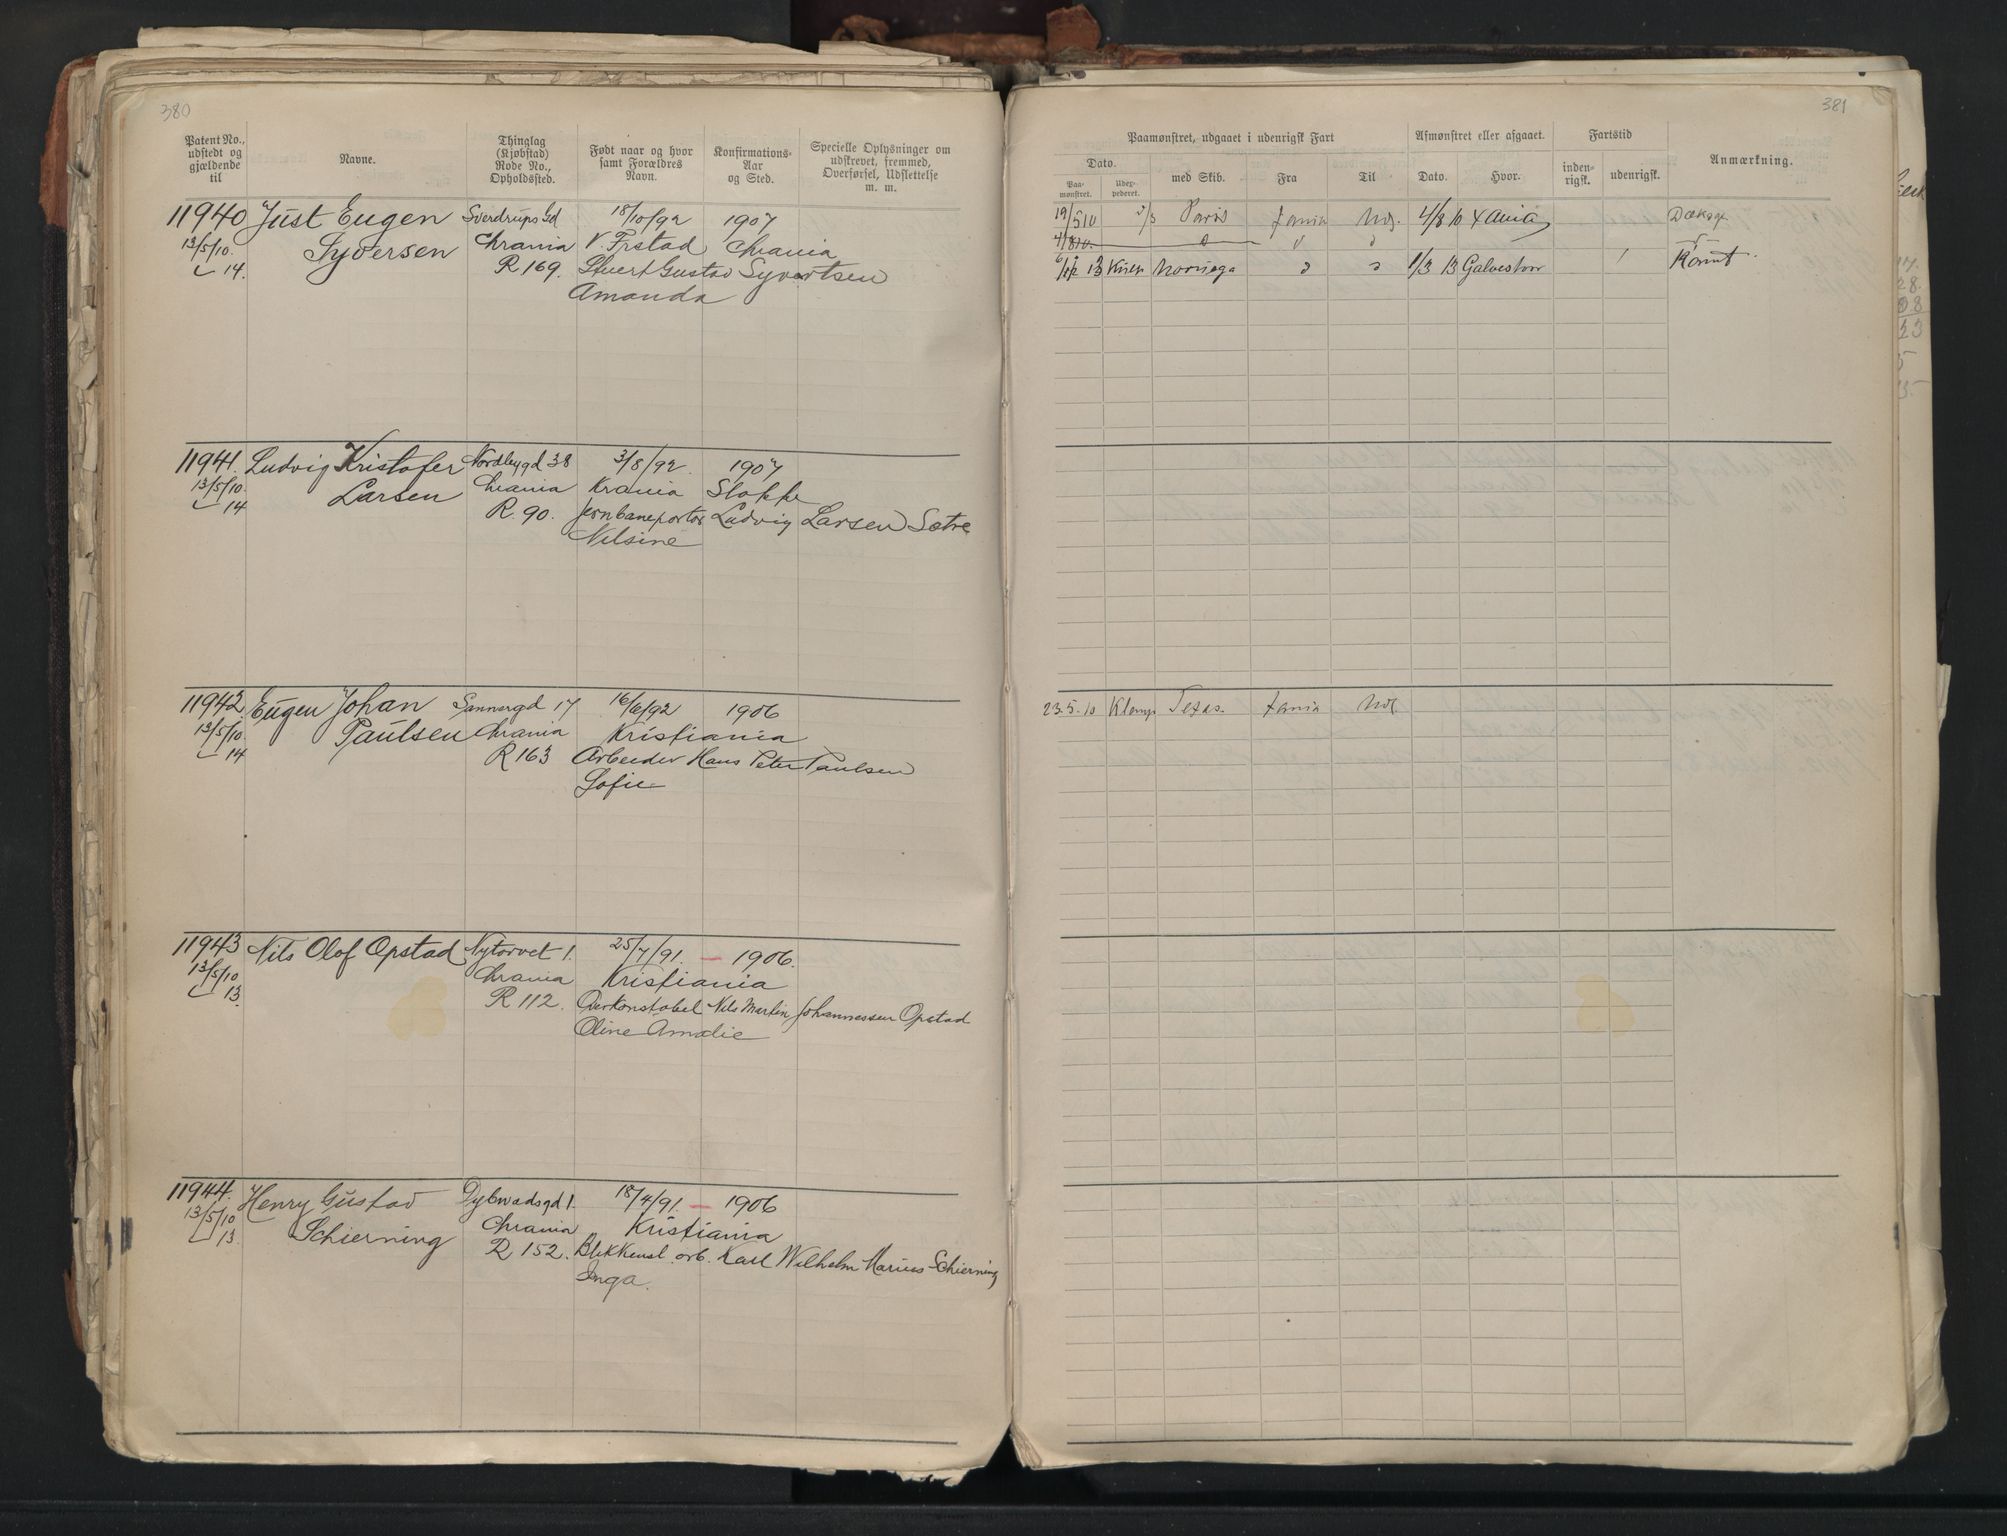 380
Patent No., udstedt og gjældende til
Navne.
Thinglag (Kjøbstad) Rode No., Opholdssted.
Født naar og hvor samt Forældres Navn.
Konfirmations-Aar og Sted.
Specielle Oplysninger om udskrevet, fremmed, Overførsel, Udslettelse m. m.
11940 Just Eugen Sverdrups Gd 18/10/92 1907
13/5/10. Syversen Chrania V. Frstad Chrania
14. R 169. Gustav Syvertsen
Amanda
11941. Ludvig Kristofer Nordbygd 38 3/8/92 1907
13/5/10. Larsen Chrania Krania
14 R. 90. Jernbaneportør Ludvig Larsen Sætre
Nilsine
11942. Eugen Johan Sannergd 17 16/6/92 1906
13/5/10. Paulsen Chrania Kristiania
14 R 163 Arbeider Hans Peter Paulsen
Sofie
11943 Nils Olof Opstad Nytorvet 1. 25/7/91. — 1906.
13/5/10 Chrania Kristiania
13. R 112. Overkonstabel Nils Martin Johannessen Opstad
Oline Amalie
11944. Henry Gustav Dybwadsgd 1. 18/4/91. — 1906
13/5/10 Schierning Chrania Kristiania
13. R 152. Blikkensl. arb. Karl Wilhelm Marius Schierning
Inga.
381
Paamønstret, udgaaet i udenrigsk Fart
Afmønstret eller afgaaet.
Fartstid
Anmærkning.
Dato.
Paa-mønstret.
Udex-pederet.
med Skib.
Fra
Til
Dato.
Hvor.
inden-rigsk.
udenrigsk.
19/5 10 Paris Xania 4/8 10 Xania
Noruega 1/3 13 Galveston
23.5.10 Texas. Xania